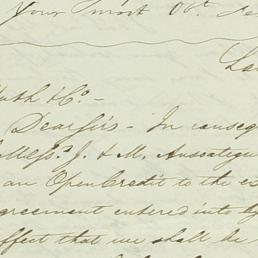 Your most Obt. Se
uth & Co. -
Dear Sirs - In conseq
Messrs. J. & M.
an Open Credit to the ex
greement entered into by
ffect that we shall be